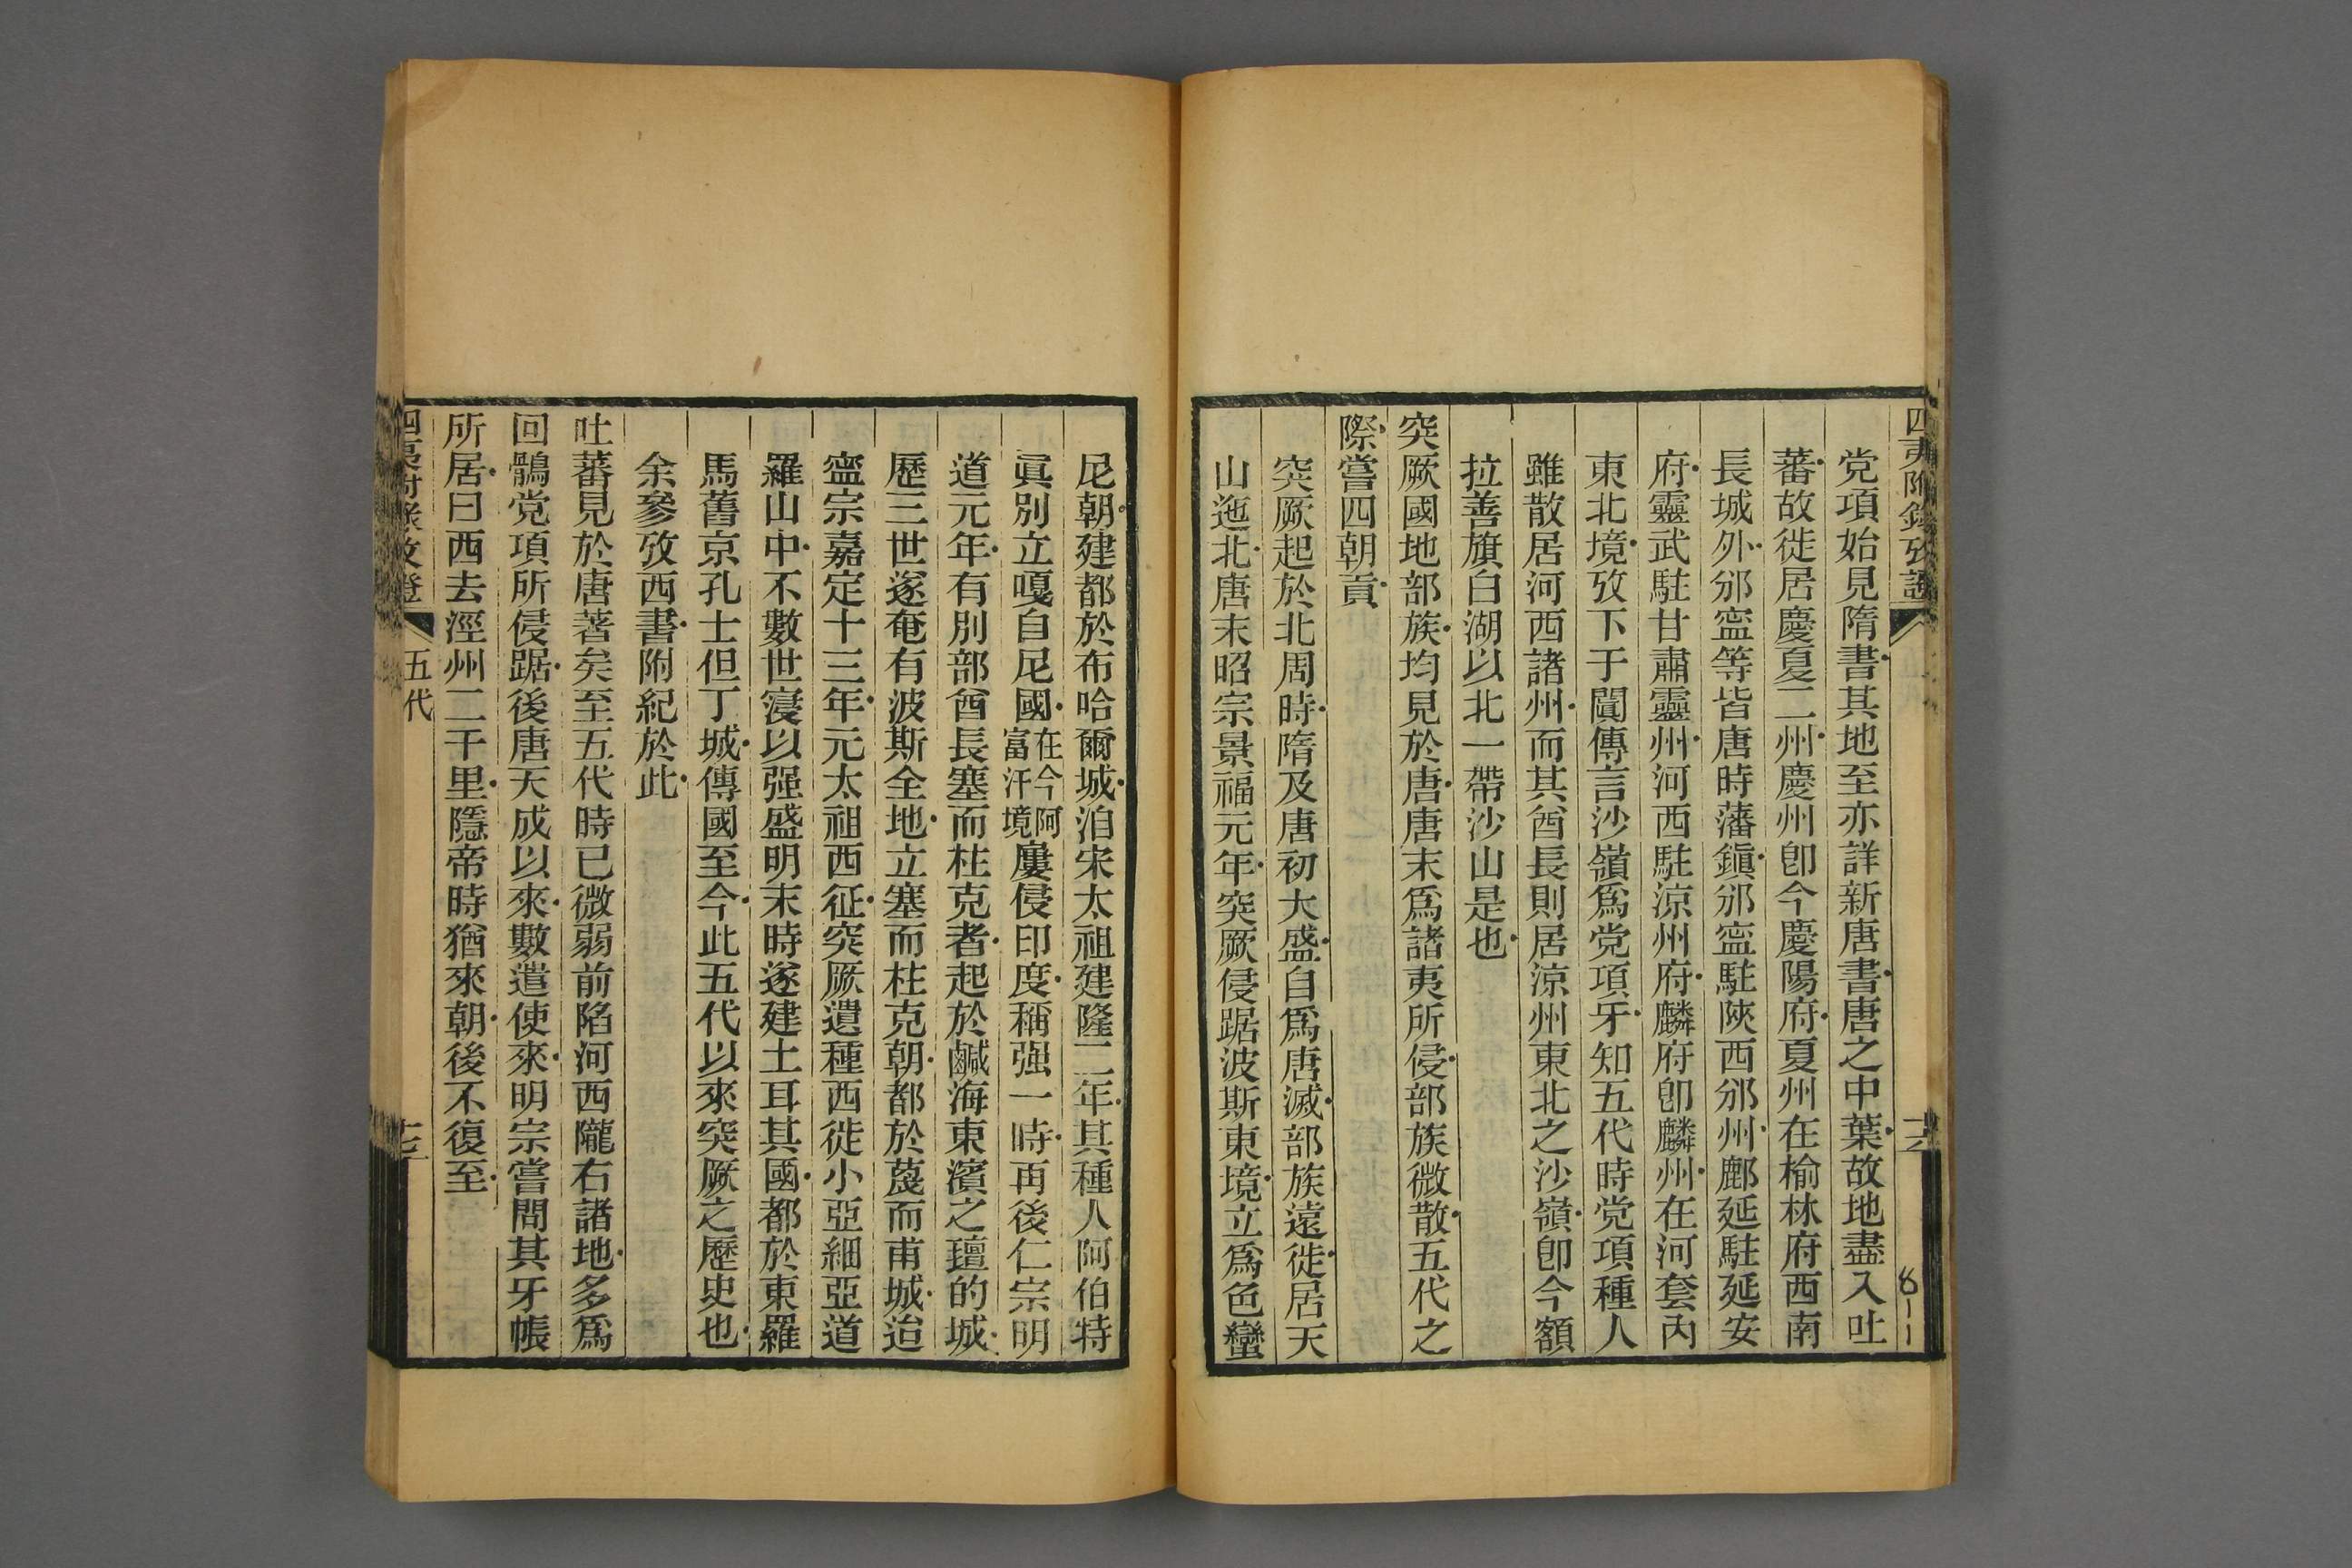 四夷附錄攷證
十六
8-11
党項始見隋書其地至亦詳新唐書唐之中葉故地盡入吐
蕃故徙居慶夏二州慶州卽今慶陽府夏州在榆林府西南
長城外邠寍等皆唐時藩鎭邠寍駐陝西邠州鄜延駐延安
府靈武駐甘肅靈州河西駐涼州府麟府卽麟州在河套內
東北境攷下于闐傳言沙嶺爲党項牙知五代時党項種人
雖散居河西諸州而其酋長則居涼州東北之沙嶺卽今額
拉善旗白湖以北一帶沙山是也
突厥國地部族均見於唐唐末爲諸夷所侵部族微散五代之
際嘗四朝貢
突厥起於北周時隋及唐初大盛自爲唐滅部族遠徙居天
山迤北唐末昭宗景福元年突厥侵踞波斯東境立爲色蠻
尼朝建都於布哈爾城洎宋太祖建隆二年其種人阿伯特
眞別立嘎自尼國在今阿富汗境屢侵印度稱强一時再後仁宗明
道元年有別部酋長塞而柱克者起於鹹海東濱之璮的城
歷三世遂奄有波斯全地立塞而柱克朝都於蔑而甫城迨
寍宗嘉定十三年元太祖西征突厥遺種西徙小亞細亞道
羅山中不數世寖以强盛明末時遂建土耳其國都於東羅
馬舊京孔士但丁城傳國至今此五代以來突厥之歷史也
余參攷西書附紀於此
吐蕃見於唐著矣至五代時已微弱前陷河西隴右諸地多爲
回鶻党項所侵踞後唐天成以來數遣使來明宗嘗問其牙帳
所居曰西去涇州二千里隱帝時猶來朝後不復至
四夷附錄攷證
五代
十七